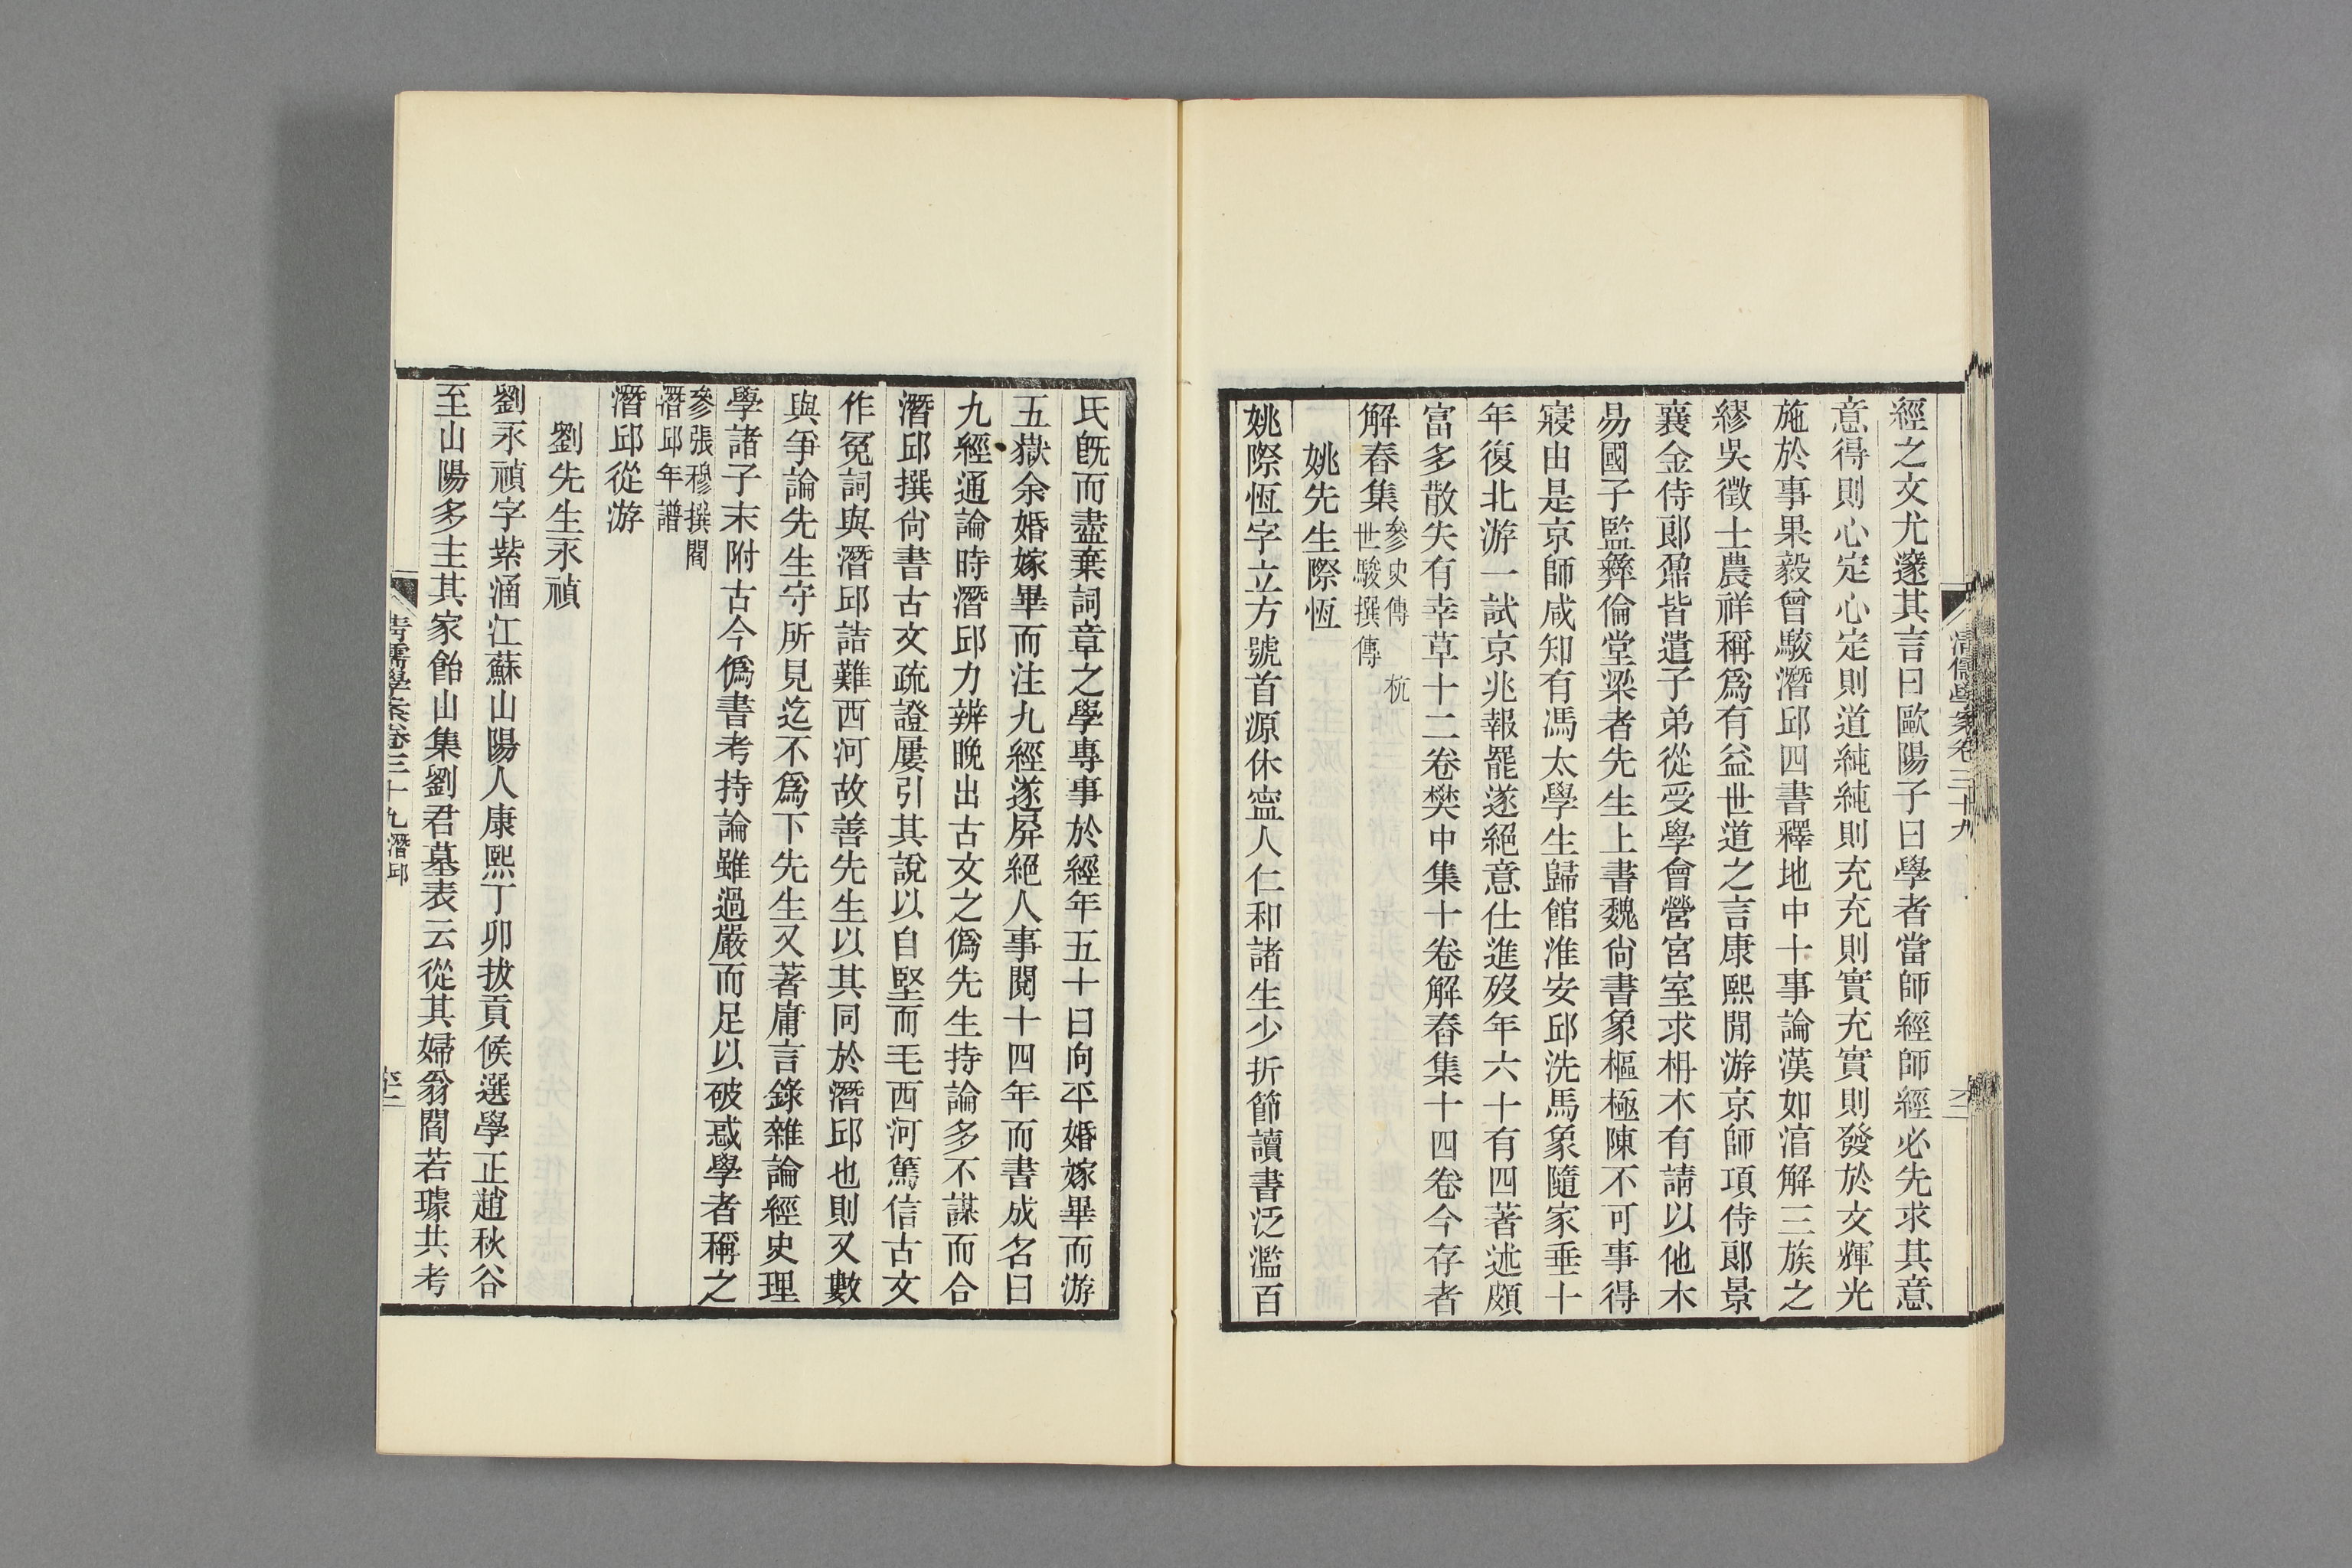 清儒學案卷三十九
經之文尤邃其言曰歐陽子曰學者當師經師經必先求其意
意得則心定心定則道純純則充充則實充實則發於文輝光
施於事果毅曾駮潛邱四書釋地中十事論漢如淯解三族之
繆吳徵士農祥稱爲有益世道之言康熙閒游京師項侍郞景
襄金侍郞鼐皆遣子弟從受學會營宮室求枏木有請以他木
易國子監彝倫堂梁者先生上書魏尙書象樞極陳不可事得
寢由是京師咸知有馮太學生歸館淮安邱洗馬象隨家垂十
年復北游一試京兆報罷遂絕意仕進歿年六十有四著述頗
富多散失有幸草十二卷樊中集十卷解舂集十四卷今存者
解舂集參史傳 杭
世駿撰傳
姚先生際恆
姚際恆字立方號首源休寍人仁和諸生少折節讀書泛濫百
氏旣而盡棄詞章之學專事於經年五十曰向平婚嫁畢而游
五嶽余婚嫁畢而注九經遂屏絕人事閱十四年而書成名曰
九經通論時潛邱力辨晚出古文之僞先生持論多不謀而合
潛邱撰尙書古文疏證屢引其說以自堅而毛西河篤信古文
作冤詞與潛邱詰難西河故善先生以其同於潛邱也則又數
與爭論先生守所見迄不爲下先生又著庸言錄雜論經史理
學諸子末附古今僞書考持論雖過嚴而足以破惑學者稱之
參張穆撰閻
潛邱年譜
潛邱從游
劉先生永禎
劉永禎字紫涵江蘇山陽人康熙丁卯拔貢候選學正趙秋谷
至山陽多主其家飴山集劉君墓表云從其婦翁閻若璩共考
清儒學案卷三十九潛邱